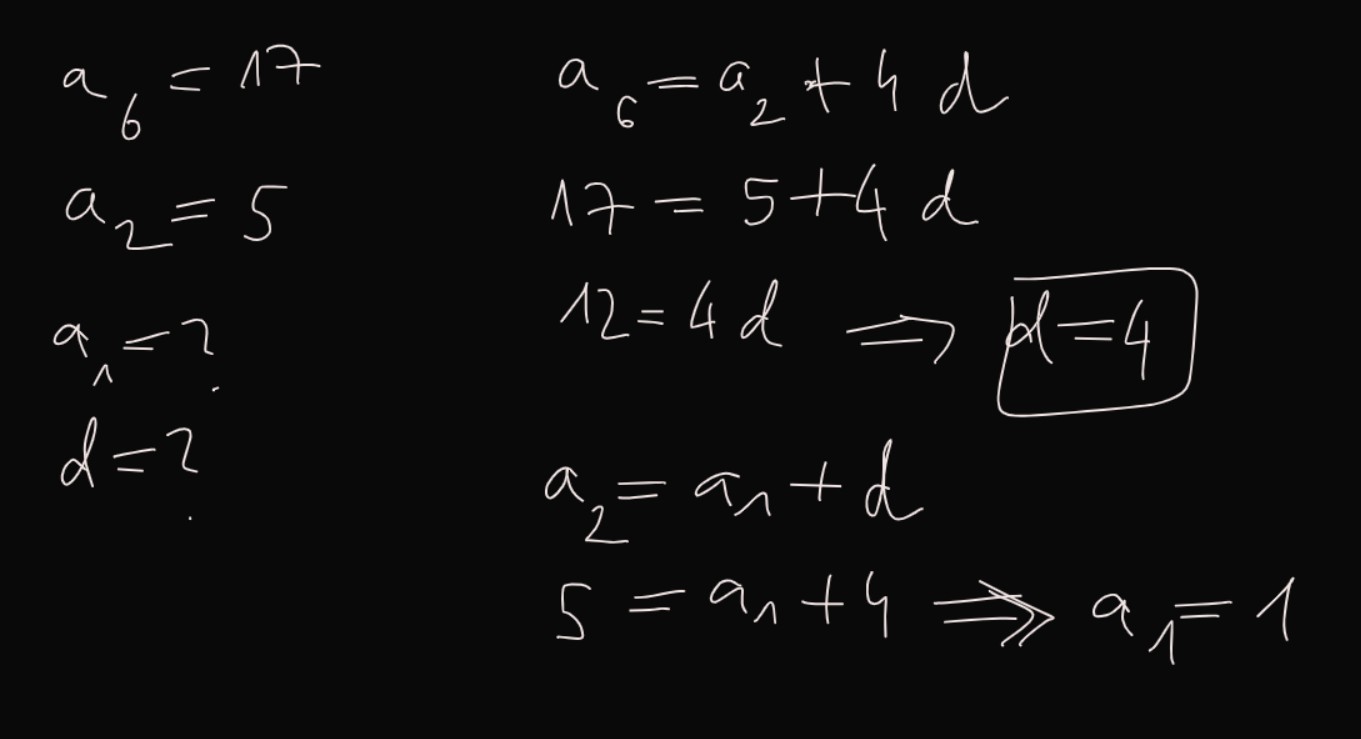 a₆ = 17
a₂ = 5
a₁ = ?
d = ?
a₆ = a₂ + 4 d
17 = 5 + 4 d
12 = 4 d ⇒ d = 4
a₂ = a₁ + d
5 = a₁ + 4 ⇒ a₁ = 1